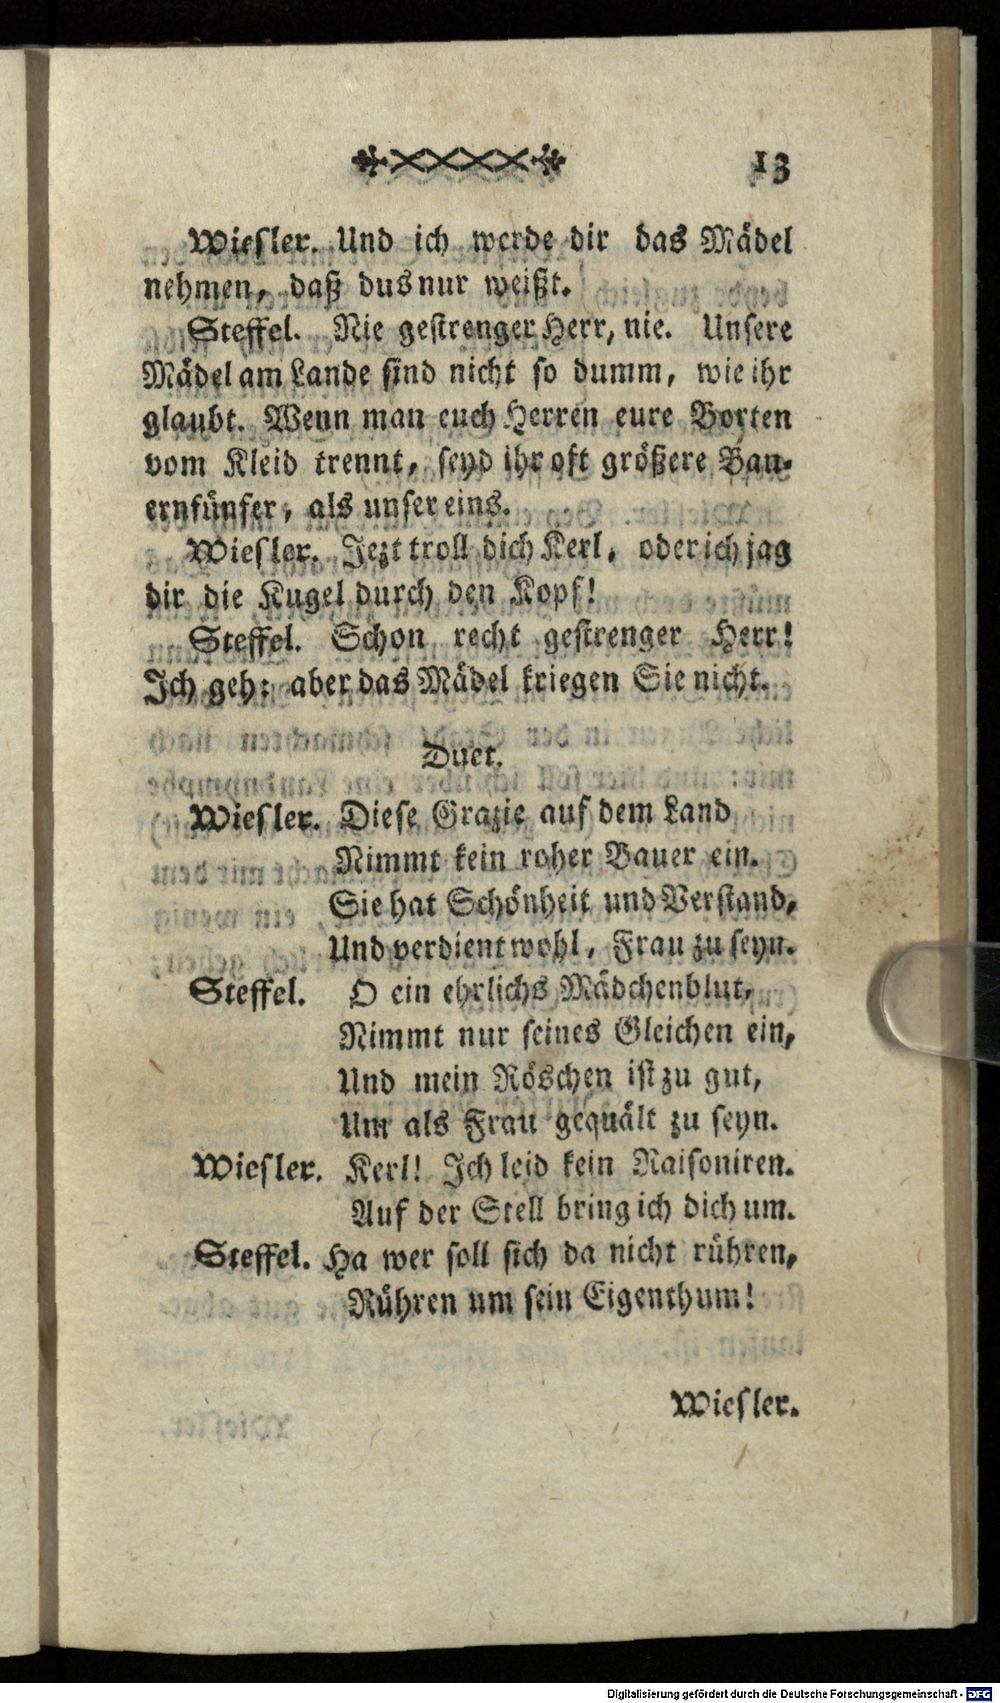 13
Wiesler. Und ich werde dir das Mädel
nehmen, daß dus nur weißt.
Steffel. Nie gestrenger Herr, nie. Unsere
Mädel am Lande sind nicht so dumm, wie ihr
glaubt. Wenn man euch Herren eure Borten
vom Kleid trennt, seyd ihr oft größere Bau-
ernfünfer, als unser eins.
Wiesler. Jezt troll dich Kerl, oder ich jag
dir die Kugel durch den Kopf!
Steffel. Schon recht gestrenger Herr!
Ich geh: aber das Mädel kriegen Sie nicht.
Duet.
Wiesler. Diese Grazie auf dem Land
Nimmt kein roher Bauer ein.
Sie hat Schönheit und Verstand,
Und verdient wohl, Frau zu seyn.
Steffel. O ein ehrlichs Mädchenblut,
Nimmt nur seines Gleichen ein,
Und mein Röschen ist zu gut,
Um als Frau gequält zu seyn.
Wiesler. Kerl! Ich leid kein Raisoniren.
Auf der Stell bring ich dich um.
Steffel. Ha wer soll sich da nicht rühren,
Rühren um sein Eigenthum!
Wiesler.
Digitalisierung gefördert durch die Deutsche Forschungsgemeinschaft - DFG